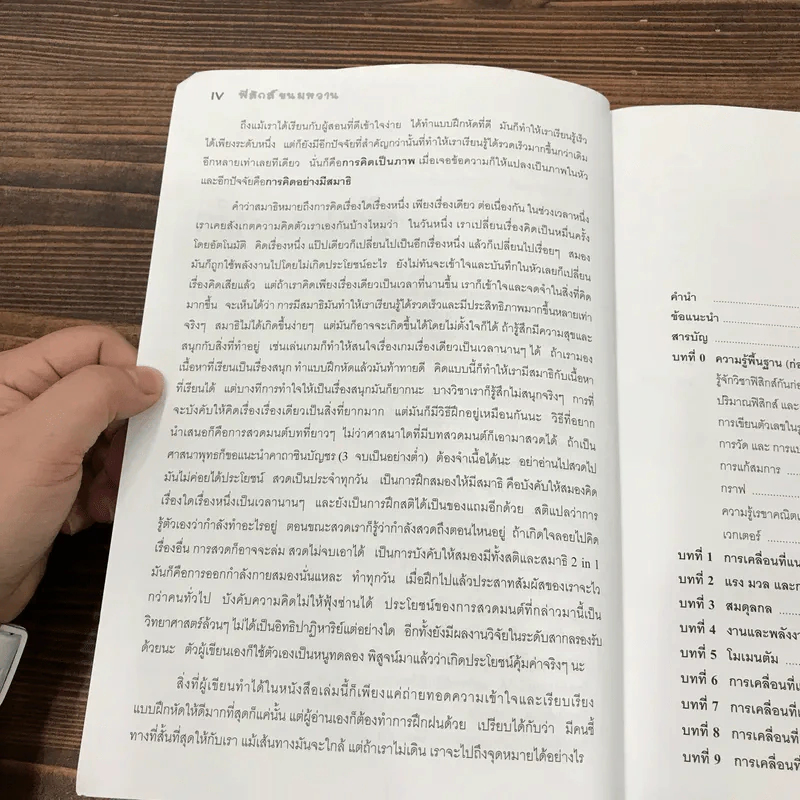 IV ฟิสิกส์ขนมหวาน
ถึงแม้เราได้เรียนกับผู้สอนที่ดีเข้าใจง่าย ได้ทำแบบฝึกหัดที่ดี มันก็ทำให้เราเรียนรู้เร็ว
ได้เพียงระดับหนึ่ง แต่ก็ยังมีอีกปัจจัยที่สำคัญกว่านั้นที่ทำให้เราเรียนรู้ได้รวดเร็วมากขึ้นกว่าเดิม
อีกหลายเท่าเลยทีเดียว นั่นก็คือการคิดเป็นภาพ เมื่อเจอข้อความก็ให้แปลงเป็นภาพในหัว
และอีกปัจจัยคือการคิดอย่างมีสมาธิ
คำว่าสมาธิหมายถึงการคิดเรื่องใดเรื่องหนึ่ง เพียงเรื่องเดียว ต่อเนื่องกัน ในช่วงเวลาหนึ่ง
เราเคยสังเกตความคิดตัวเราเองกันบ้างไหมว่า ในวันหนึ่ง เราเปลี่ยนเรื่องคิดเป็นหมื่นครั้ง
โดยอัตโนมัติ คิดเรื่องหนึ่ง แป๊ปเดียวก็เปลี่ยนไปเป็นอีกเรื่องหนึ่ง แล้วก็เปลี่ยนไปเรื่อยๆ สมอง
มันก็ถูกใช้พลังงานไปโดยไม่เกิดประโยชน์อะไร ยังไม่ทันจะเข้าใจและบันทึกในหัวเลยก็เปลี่ยน
เรื่องคิดเสียแล้ว แต่ถ้าเราคิดเพียงเรื่องเดียวเป็นเวลาที่นานขึ้น เราก็เข้าใจและจดจำในสิ่งที่คิด
มากขึ้น จะเห็นได้ว่า การมีสมาธิมันทำให้เราเรียนรู้ได้รวดเร็วและมีประสิทธิภาพมากขึ้นหลายเท่า
จริงๆ สมาธิไม่ได้เกิดขึ้นง่ายๆ แต่มันก็อาจจะเกิดขึ้นได้โดยไม่ตั้งใจก็ได้ ถ้ารู้สึกมีความสุขและ
สนุกกับสิ่งที่ทำอยู่ เช่นเล่นเกมก็ทำให้สนใจเรื่องเกมเรื่องเดียวเป็นเวลานานๆ ได้ ถ้าเรามอง
เนื้อหาที่เรียนเป็นเรื่องสนุก ทำแบบฝึกหัดแล้วมันท้าทายดี คิดแบบนี้ก็ทำให้เรามีสมาธิกับเนื้อหา
ที่เรียนได้ แต่บางทีการทำใจให้เป็นเรื่องสนุกมันก็ยากนะ บางวิชาเราก็รู้สึกไม่สนุกจริงๆ การที่
จะบังคับให้คิดเรื่องเรื่องเดียวเป็นสิ่งที่ยากมาก แต่มันก็มีวิธีฝึกอยู่เหมือนกันนะ วิธีที่อยาก
นำเสนอก็คือการสวดมนต์บทที่ยาวๆ ไม่ว่าศาสนาใดที่มีบทสวดมนต์ก็เอามาสวดได้ ถ้าเป็น
ศาสนาพุทธก็ขอแนะนำคาถาชินบัญชร (3 จบเป็นอย่างต่ำ) ต้องจำเนื้อได้นะ อย่าอ่านไปสวดไป
มันไม่ค่อยได้ประโยชน์ สวดเป็นประจำทุกวัน เป็นการฝึกสมองให้มีสมาธิ คือบังคับให้สมองคิด
เรื่องใดเรื่องหนึ่งเป็นเวลานานๆ และยังเป็นการฝึกสติได้เป็นของแถมอีกด้วย สติแปลว่าการ
รู้ตัวเองว่ากำลังทำอะไรอยู่ ตอนขณะสวดเราก็รู้ว่ากำลังสวดถึงตอนไหนอยู่ ถ้าเกิดใจลอยไปคิด
เรื่องอื่น การสวดก็อาจจะล่ม สวดไม่จบเอาได้ เป็นการบังคับให้สมองมีทั้งสติและสมาธิ 2 in 1
มันก็คือการออกกำลังกายสมองนั่นแหละ ทำทุกวัน เมื่อฝึกไปแล้วประสาทสัมผัสของเราจะไว
กว่าคนทั่วไป บังคับความคิดไม่ให้ฟุ้งซ่านได้ ประโยชน์ของการสวดมนต์ที่กล่าวมานี้เป็น
วิทยาศาสตร์ล้วนๆ ไม่ได้เป็นอิทธิปาฏิหาริย์แต่อย่างใด อีกทั้งยังมีผลงานวิจัยในระดับสากลรองรับ
ด้วยนะ ตัวผู้เขียนเองก็ใช้ตัวเองเป็นหนูทดลอง พิสูจน์มาแล้วว่าเกิดประโยชน์คุ้มค่าจริงๆ นะ
สิ่งที่ผู้เขียนทำได้ในหนังสือเล่มนี้ก็เพียงแค่ถ่ายทอดความเข้าใจและเรียบเรียง
แบบฝึกหัดให้ดีมากที่สุดก็แค่นั้น แต่ผู้อ่านเองก็ต้องทำการฝึกฝนด้วย เปรียบได้กับว่า มีคนชี้
ทางที่สั้นที่สุดให้กับเรา แม้เส้นทางมันจะใกล้ แต่ถ้าเราไม่เดิน เราจะไปถึงจุดหมายได้อย่างไร
คำนำ
ข้อแนะนำ
สารบัญ
บทที่ 0 ความรู้พื้นฐาน (ก่อ
รู้จักวิชาฟิสิกส์กันก่อ
ปริมาณฟิสิกส์ และ
การเขียนตัวเลขในรู
การวัด และ การแป
การแก้สมการ
กราฟ
ความรู้เรขาคณิต
เวกเตอร์
บทที่ 1 การเคลื่อนที่แน
บทที่ 2 แรง มวล และก
บทที่ 3 สมดุลกล
บทที่ 4 งานและพลังง
บทที่ 5 โมเมนตัม
บทที่ 6 การเคลื่อนที่
บทที่ 7 การเคลื่อนที่
บทที่ 8 การเคลื่อนที่
บทที่ 9 การเคลื่อนที่